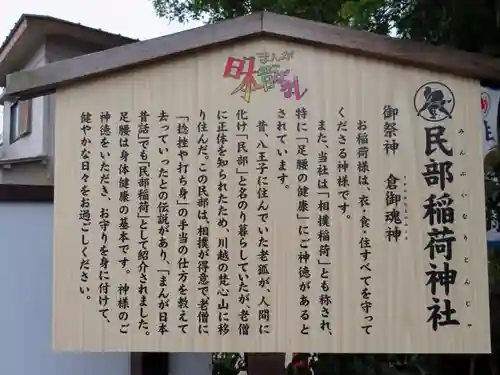 まんが
日本昔ばなし
民部稲荷神社
みんぶいなりじんじゃ
御祭神　倉御魂神
お稲荷様は、衣・食・住すべてを守って
くださる神様です。
また、当社は「相撲稲荷」とも称され、
特に「足腰の健康」にご神徳があると
されています。
昔、八王子に住んでいた老狐が、人間に
化け「民部」と名のり暮らしていたが、老僧
に正体を知られたため、川越の梵心山に移
り住んだ。この民部は、相撲が得意で老僧に
「捻挫や打ち身」の手当の仕方を教えて
去っていったとの伝説があり、「まんが日本
昔話」でも「民部稲荷」として紹介されました。
足腰は身体健康の基本です。神様のご
神徳をいただき、お守りを身に付けて、
健やかな日々をお過ごしください。